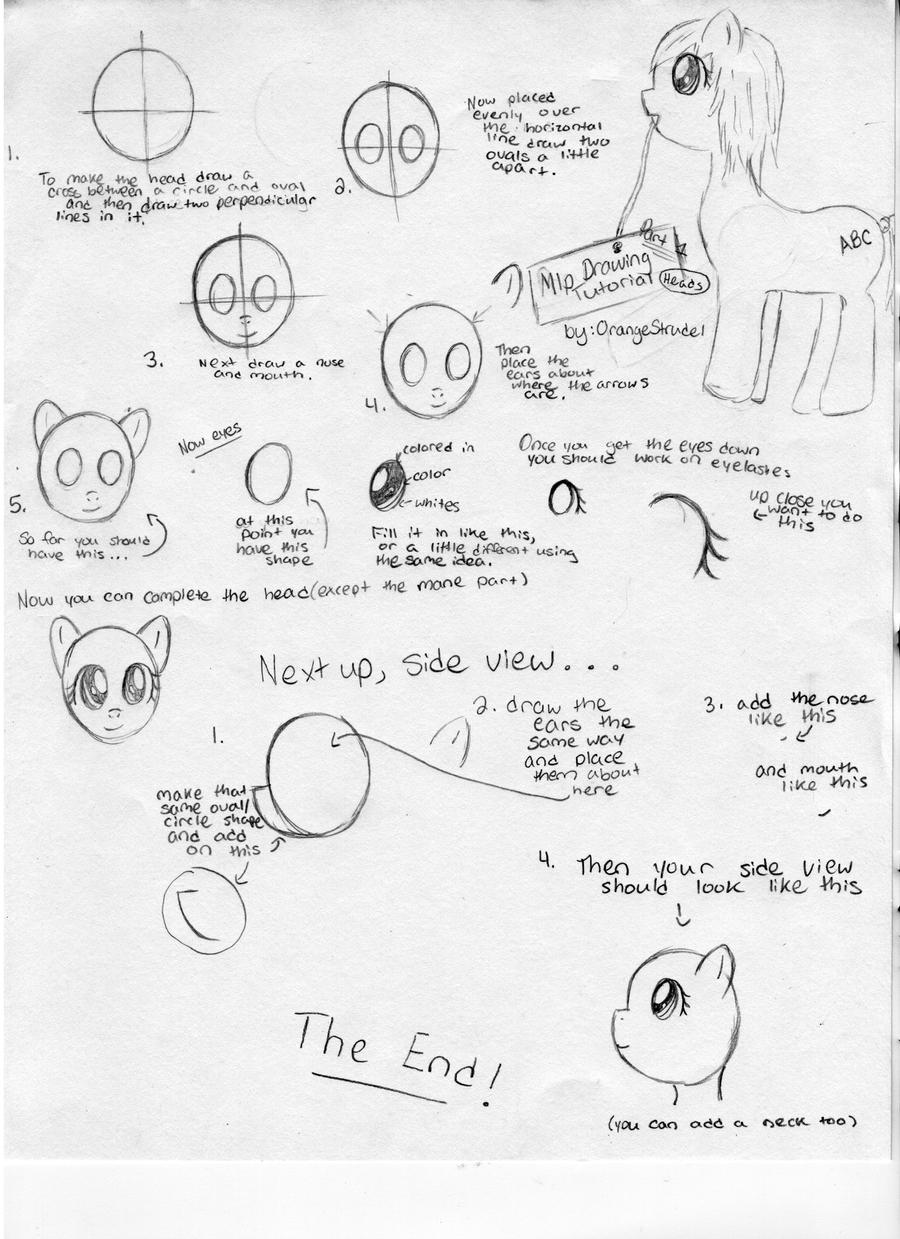 1.
To make the head draw a
cross between a circle and oval
and then draw two perpendicular
lines in it.
2.
Now placed
evenly over
the horizontal
line draw two
ovals a little
apart.
ABC
Part
Mlp Drawing
Tutorial Heads
by: OrangeStrudel
3.
Next draw a nose
and mouth.
4.
Then
place the
ears about
where the arrows
are.
5.
So far you should
have this...
Now eyes
at this
point you
have this
shape
colored in
color
whites
Fill it in like this,
or a little different using
the same idea.
Once you get the eyes down
you should work on eyelashes
up close you
want to do
this
Now you can complete the head (except the mane part)
Next up, side view...
1.
make that
same oval/
circle shape
and add
on this
2. draw the
ears the
same way
and place
them about
here
3. add the nose
like this
and mouth
like this
4. Then your side view
should look like this
(you can add a neck too)
The End!